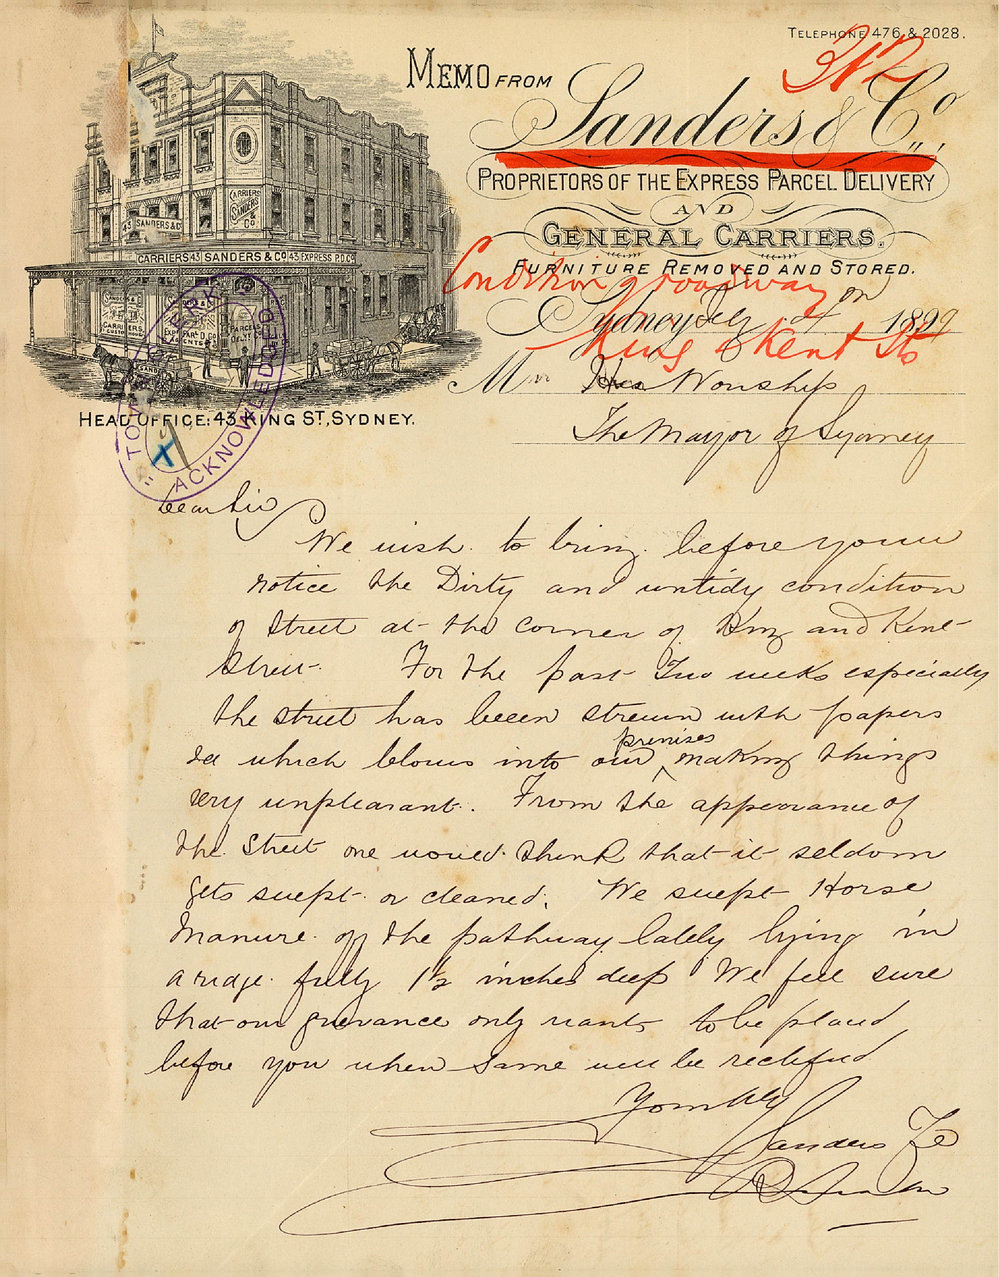 TELEPHONE 476 & 2028.
312
MEMO FROM
Sanders & Co.,
PROPRIETORS OF THE EXPRESS PARCEL DELIVERY
AND
GENERAL CARRIERS.
FURNITURE REMOVED AND STORED.
Condition of roadway on
King & Kent Sts
Sydney Feby 1899
CARRIERS
SANDERS
& Co
43 SANDERS & Co
CARRIERS 43 SANDERS & Co 43 EXPRESS P.D. Co
HEAD OFFICE: 43 KING ST., SYDNEY.
TOWN CLERK
ACKNOWLEDGED
M His Worship
The Mayor of Sydney
Dear Sir
We wish to bring before your
notice the Dirty and untidy condition
of Street at the corner of King and Kent
Street. For the past Two weeks especially
the street has beeen strewn with papers
&c which blows into our premises making things
very unpleasant. From the appearance of
the Street one would think that it seldom
gets swept or cleaned. We swept Horse
Manure off the pathway lately lying in
a ridge fully 1½ inches deep We feel sure
that our grievance only wants to be placed
before you when same will be rectified
Yours truly
Sanders & Co